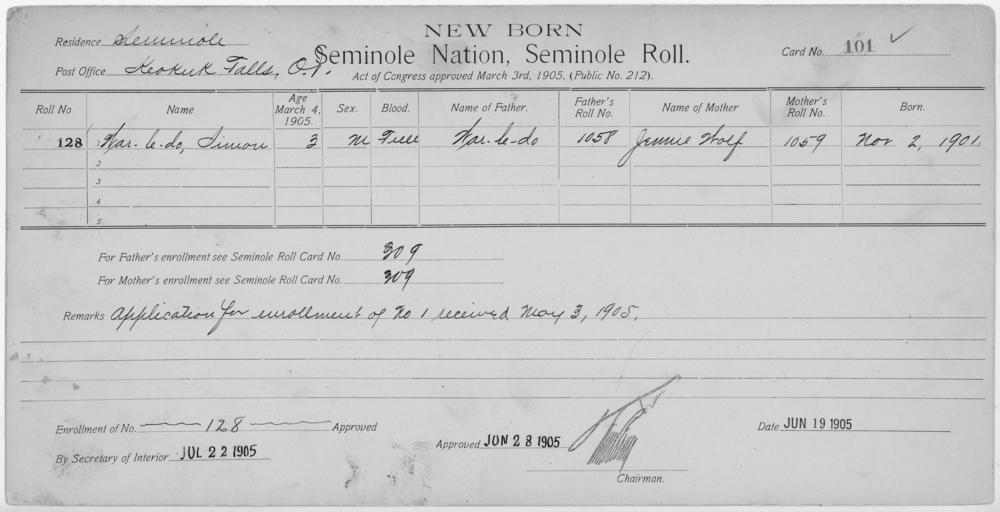 NEW BORN
Residence Seminole
Seminole Nation, Seminole Roll.
Card No. 101 ✓
Post Office Keokuk Falls, O.T.
Act of Congress approved March 3rd, 1905. (Public No. 212).
Roll No Name Age March 4, 1905. Sex. Blood. Name of Father. Father's Roll No. Name of Mother Mother's Roll No. Born.
128 1 War-le-do, Simon 3 M Full War-le-do 1058 Jennie Wolf 1059 Nov 2, 1901.
2
3
4
5
For Father's enrollment see Seminole Roll Card No. 309
For Mother's enrollment see Seminole Roll Card No. 309
Remarks Application for enrollment of No 1 received May 3, 1905.
Enrollment of No. 128 Approved
Date JUN 19 1905
Approved JUN 28 1905
By Secretary of Interior JUL 22 1905
Chairman.